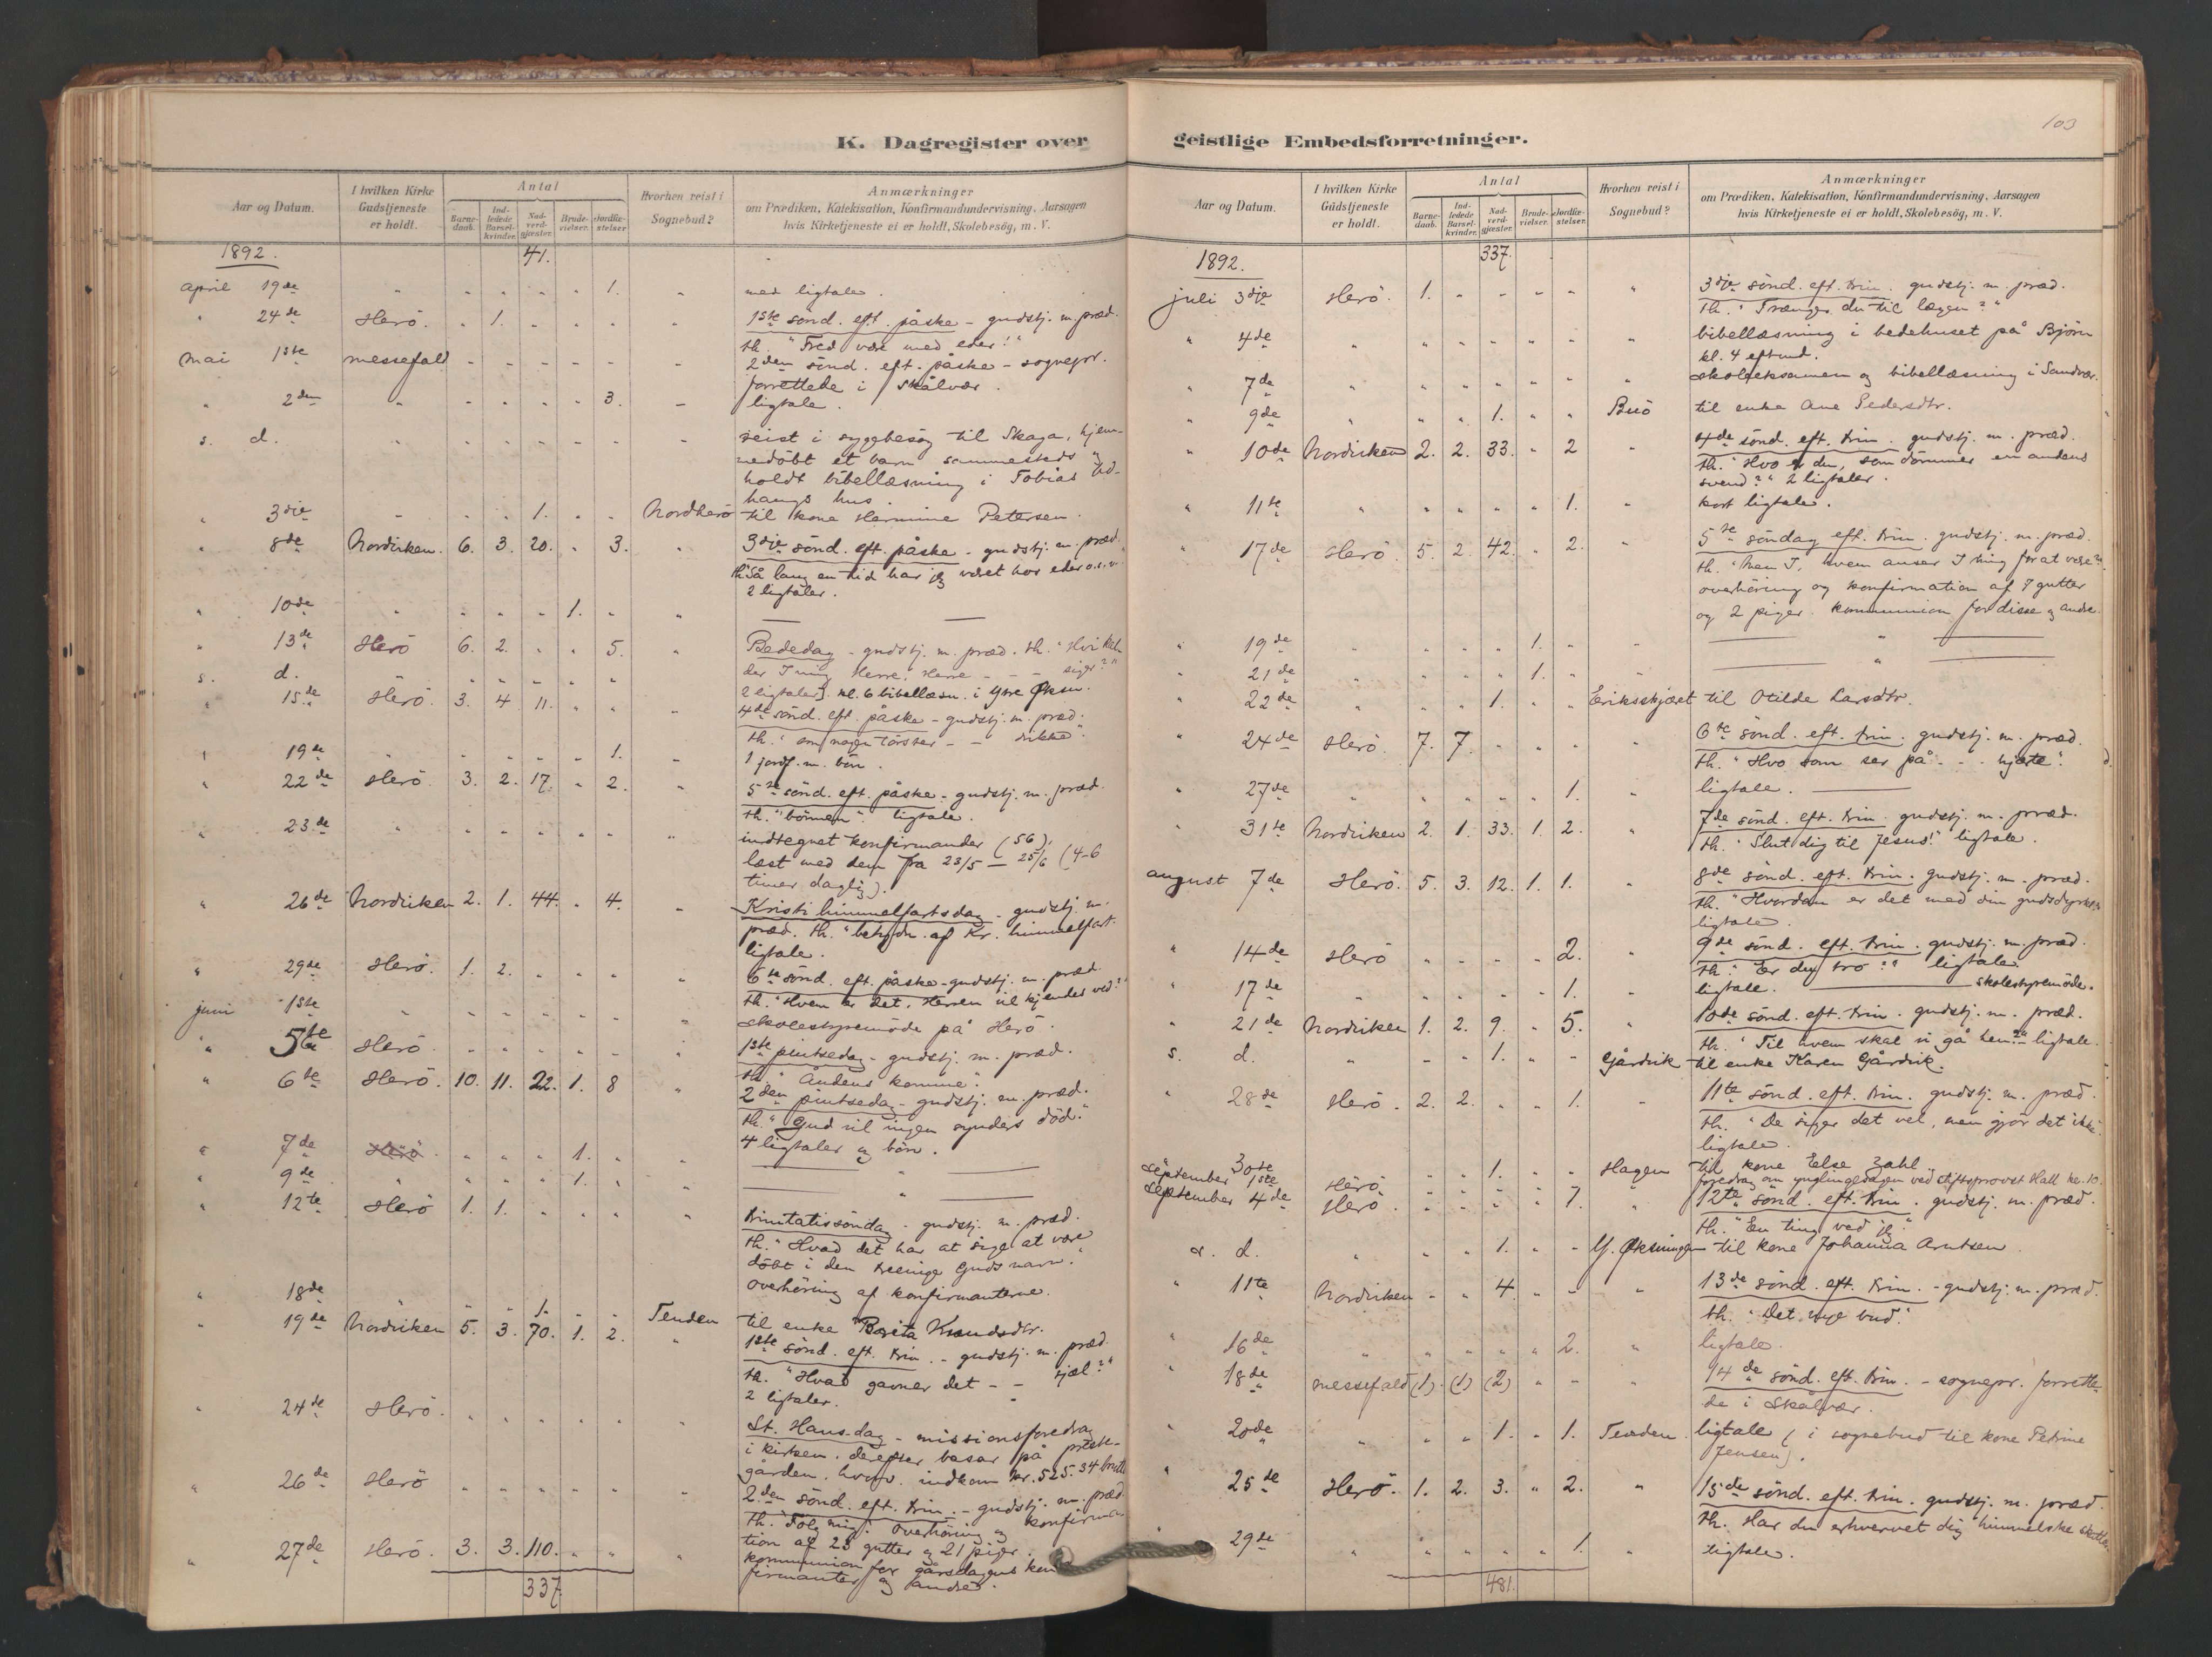 K. Dagregister over
Aar og Datum.
I hvilken Kirke Gudstjeneste er holdt.
Antal
Barne-daab.
Ind-ledede Barsel-kvinder.
Nad-verd-gjæster.
Brude-vielser.
Jordfæ-stelser.
Hvorhen reist i Sognebud?
Anmærkninger
om Prædiken, Katekisation, Konfirmandundervisning, Aarsagen
hvis Kirketjeneste ei er holdt, Skolebesög, m. V.
1892. 41.
april 19de " " " " " 1. " med ligtale.
" 24de Herö. " 1. " " " " 1ste sönd. eft. påske - gudstj. m. præd.
th. "Fred være med eder!"
mai 1ste messefald - - - - - - 2den sönd. eft. påske - sognepr.
forrettede i Skålvær.
" 2den " - - - - 3. - ligtale.
s. d. " - - - - - - reist i sygebesög til Skaga, hjem-
medöbt et barn sammesteds og
holdt bibellæsning i Tobias Ud-
haugs hus.
" 3die - - - 1. - - Nordherö til kone Hermine Petersen.
" 8de Nordviken. 6. 3. 20. " 3. " 3die sönd. eft. påske - gudstj. m. præd.
th. "Så lang en tid har jeg været hos eder o.s.v.
2 ligtaler.
" 10de " - - - 1. - "
" 13de Herö 6. 2. " " 5. " Bededag - gudstj. m. præd. th. "Hvi kal-
der I mig Herre, Herre - - - siger?"
s. d. " " " " " " 2 ligtaler). kl. 6 bibellæsn. i Ytre Øksn.
" 15de Herö. 3. 4. 11. " " " 4de sönd. eft. påske - gudstj. m. præd.
th. "om nogen törster - - drikke".
" 19de " - - - - 1. - 1 jordf. m. bön.
" 22de Herö 3. 2. 17. " 2. " 5te sönd. eft. påske - gudstj. m. præd.
th. "bönnen". ligtale.
" 23de " - - - - - " indtegnet konfirmander (56),
læst med dem fra 23/5 - 25/6 (4-6
timer daglig).
" 26de Nordviken 2. 1. 44. " 4. - Kristi himmelfartsdag - gudstj. m.
præd. th. "betydn. af Kr. himmelfart.
ligtale.
" 29de Herö. 1. 2. " " " " 6te sönd. eft. påske - gudstj. m. præd
th. "Hvem er det, Herren vil kjendes ved?"
juni 1ste " " " " " " " skolestyremöde på Herö.
" 5te Herö " " " " " " 1ste pintsedag - gudstj. m. præd.
th. "Åndens komme".
" 6te Herö. 10. 11. 22. 1. 8 " 2den pintsedag - gudstj. m. præd.
th. "Gud vil ingen synders död."
4 ligtaler og bön.
" 7de Herö " " " 1. " "
" 9de " " " " 1. " "
" 12te Herö 1. 1. " " " " Trinitatissöndag - gudstj. m. præd.
th. "Hvad det har at sige at være
döbt i den treenige Guds navn."
overhöring af konfirmanterne.
" 18de " - - 1. - - Tenden til enke Berita Knudsdtr.
" 19de Nordviken 5. 3. 70. 1. 2. " 1ste sönd. eft. trin. - gudstj. m. præd
th. "Hvad gavner det - - sjæl?"
2 ligtaler.
" 24de Herö. " " " " " " St. Hans-dag - missionsforedrag
i kirken, derefter basar på preste-
gården, hvorv. indkom kr. 525.34 brutto
" 26de Herö " " " " " " 2den sönd. eft. trin. - gudstj. m. præd.
th. "Fölg mig". overhöring og konfirma-
tion af 23 gutter og 21 piger.
" 27de Herö. 3. 3. 110. " " " kommunion for gårsdagens kon
firmanter og andre.
337.
geistlige Embedsforretninger.
103
Aar og Datum.
I hvilken Kirke Gudstjeneste er holdt.
Antal
Barne-daab.
Ind-ledede Barsel-kvinder.
Nad-verd-gjæster.
Brude-vielser.
Jordfæ-stelser.
Hvorhen reist i Sognebud?
Anmærkninger
om Prædiken, Katekisation, Konfirmandundervisning, Aarsagen
hvis Kirketjeneste ei er holdt, Skolebesög, m. V.
1892. 337.
juli 3dje Herö. 1. - - - - " 3dje sönd. eft. trin. gudstj. m. præd.
th. "Trænger du til lægen?"
" 4de " " " " " " " bibellæsning i bedehuset på Bjørn
kl. 4 eftmd.
" 7de " " " " " " " skoleeksamen og bibellæsning i Sandvær.
" 9de " " " 1. " " Buö til enke Ane Pedersdtr.
" 10de Nordviken 2. 2. 33. - 2 " 4de sönd. eft. trin. gudstj. m. præd.
th. "Hvo er du, som dömmer en andens
svend?" 2 ligtaler.
" 11te " " " " " 1. " kort ligtale.
" 17de Herö. 5. 2. 42. - 2. " 5te söndag eft. trin. gudstj. m. præd.
th. "Men I, hvem anser I mig for at være?"
overhöring og konfirmation af 7 gutter
og 2 piger. kommunion for disse og andre.
" 19de " " " " 1. " " "
" 21de " " " " 1. " " "
" 22de " " " 1. " " Eriksskjæret til Otilde Larsdtr.
" 24de Herö. 7. 7. " " " " 6te sönd. eft. trin. gudstj. m. præd.
th. "Hvo som ser på - - hjerte".
" 27de " " " " " 1. " ligtale.
" 31te Nordviken 2. 1. 33. 1. 2. " 7de sönd. eft. trin. gudstj. m. præd.
th. "Slut dig til Jesus!" ligtale.
august 7de Herö. 5. 3. 12. 1. 1. " 8de sönd. eft. trin. gudstj. m. præd.
th. "Hvordan er det med din gudsdyrkelse
ligtale.
" 14de Herö " " " " 2. " 9de sönd. eft. trin. gudstj. m. præd.
th. "Er du tro?" ligtale.
" 17de " " " " " 1. " ligtale. skolestyremöde.
" 21de Nordviken 1. 2. 9. " 5. " 10de sönd. eft. trin. gudstj. m. præd.
th. "Til hvem skal vi gå hen?" ligtale.
s. d. " " " 1. " - Gårdvik til enke Karen Gårdvik.
" 28de Herö. 2. 2. " " 1. " 11te sönd. eft. trin. gudstj. m. præd.
th. "De siger det vel, men gjör det ikke".
ligtale.
" 30te " " " 1. " " Hagen til kone Else Zahl.
september 1ste Herö. " " " " " " foredrag om ynglingesagen ved stiftsprovst Hall kl. 10.
september 4de Herö. " " " " 1. " 12te sönd. eft. trin. gudstj. m. præd.
th. "En ting ved jeg".
s. d. " " " 1. " - Y. Øksningen til kone Johanna Arntsen.
" 11te Nordviken - " 4. " - " 13de sönd. eft. trin. - gudstj. m. præd.
th. "Det nye bud".
" 16de " " " " " 2. " ligtale.
" 18de messefald (1). (1) (2) " - " 14de sönd. eft. trin. - sognepr. forrette-
de i Skålvær.
" 20de " " " 1. " 1. Tenden. ligtale (i sognebud til kone Petrine
Jensen).
" 25de Herö. 1. 2. 3. " 2. " 15de sönd. eft. trin. gudstj. m. præd.
th. Har du erhvervet dig himmelske skatte.
" 29de " " " " " 1. " ligtale.
481.